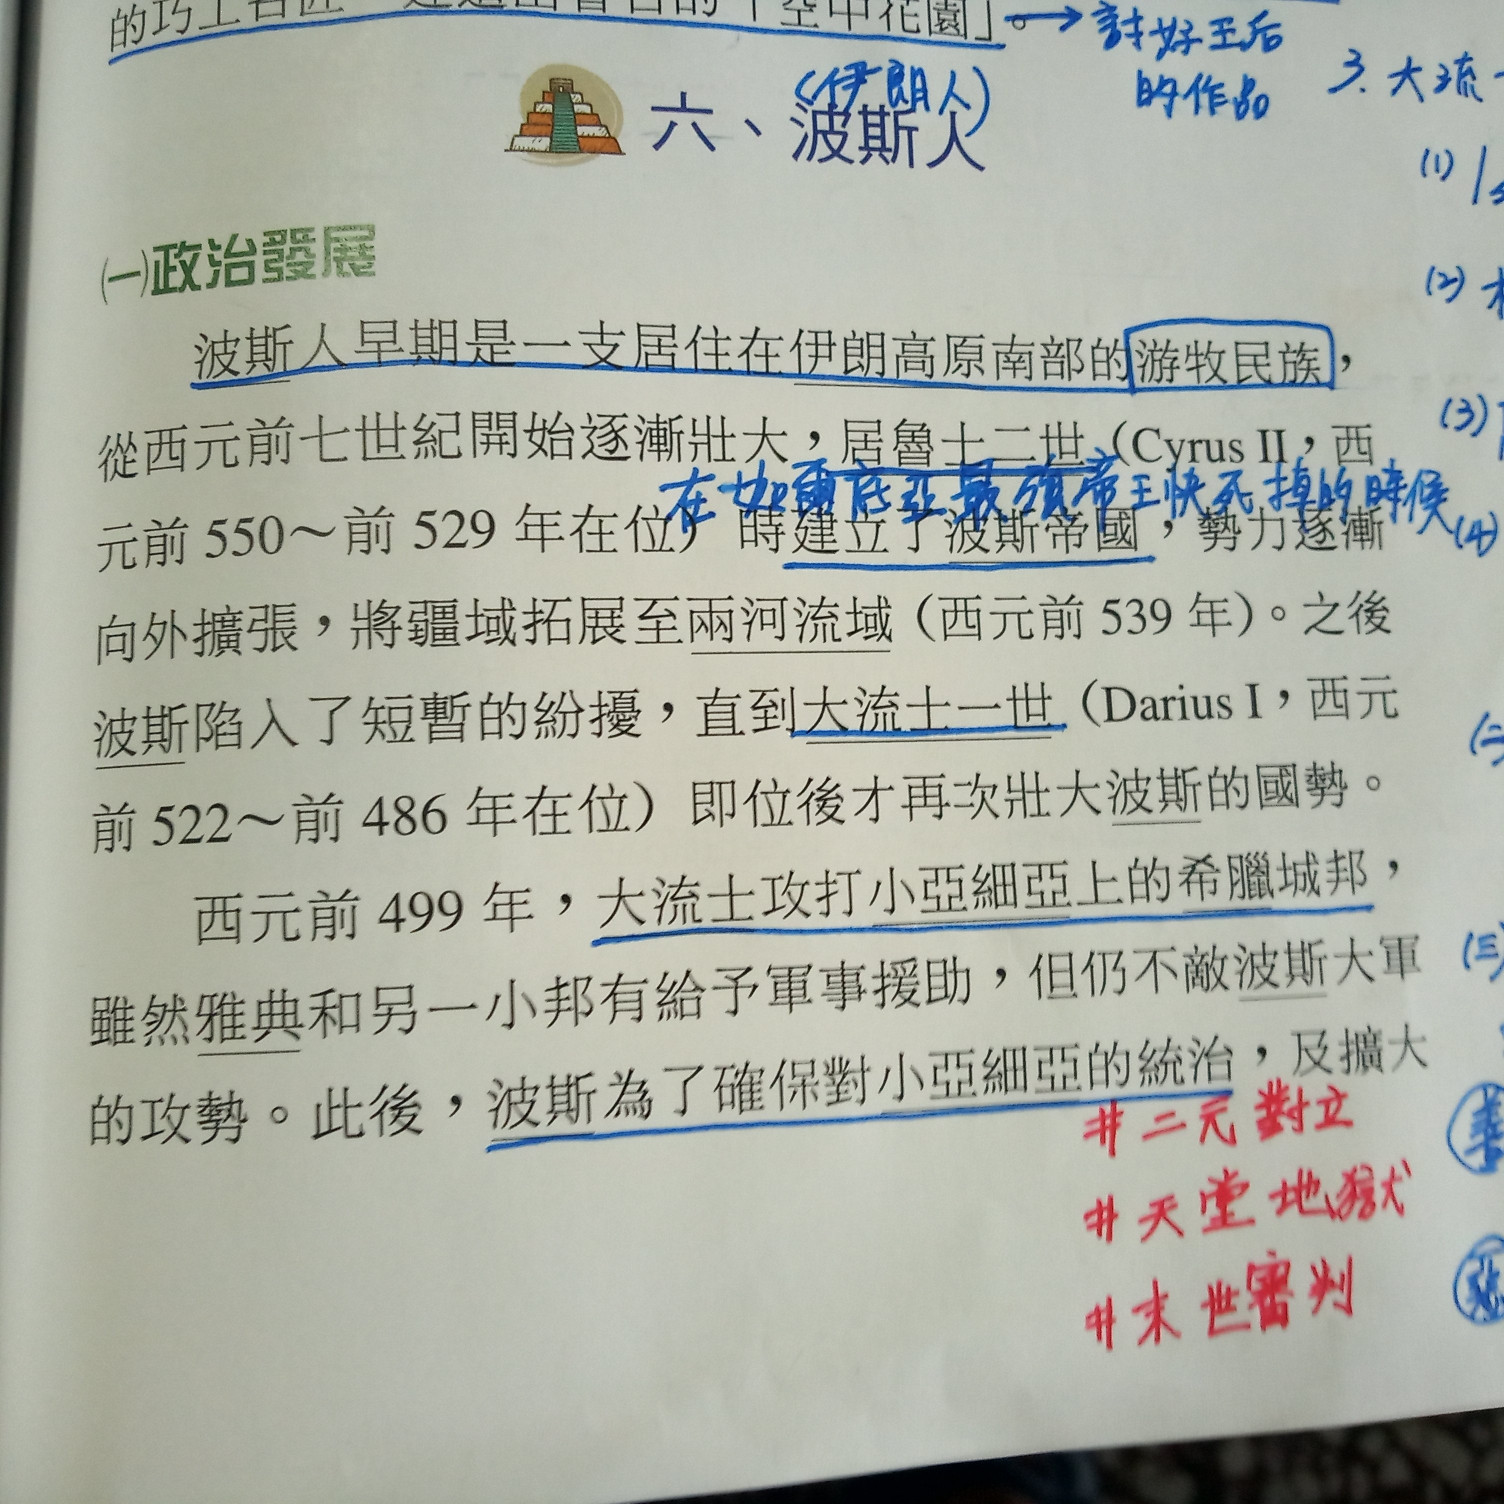 的巧工名匠，建造出著名的「空中花園」。→討好王后
的作品
(伊朗人)
六、波斯人
3.大流
(1)
(2)
(3)
(4)
㈠政治發展
波斯人早期是一支居住在伊朗高原南部的游牧民族，
從西元前七世紀開始逐漸壯大，居魯士二世（Cyrus II，西
在加爾底亞最強帝王快死掉的時候
元前 550～前 529 年在位）時建立了波斯帝國，勢力逐漸
向外擴張，將疆域拓展至兩河流域（西元前 539 年）。之後
波斯陷入了短暫的紛擾，直到大流士一世（Darius I，西元
(二
前 522～前 486 年在位）即位後才再次壯大波斯的國勢。
西元前 499 年，大流士攻打小亞細亞上的希臘城邦，
(三)
雖然雅典和另一小邦有給予軍事援助，但仍不敵波斯大軍
的攻勢。此後，波斯為了確保對小亞細亞的統治，及擴大
#二元對立
善
#天堂地獄
#末世審判
惡